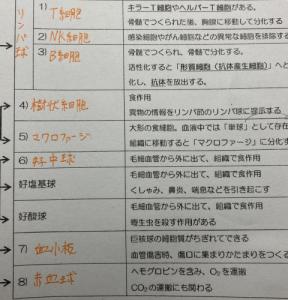 リンパ球
1) T細胞
キラーT細胞やヘルパーT細胞がある。
骨髄でつくられた後、胸腺に移動して分化する
2) NK細胞
感染細胞やがん細胞などの異常な細胞を排除する
3) B細胞
骨髄でつくられ、骨髄で分化する。
活性化すると「形質細胞（抗体産生細胞）」へと
化し、抗体を放出する。
4) 樹状細胞
食作用
異物の情報をリンパ節のリンパ球に提示する
5) マクロファージ
大形の食細胞。血液中では「単球」として存在
組織に移動すると「マクロファージ」に分化す
6) 好中球
毛細血管から外に出て、組織で食作用
好塩基球
毛細血管から外に出て、組織で食作用
くしゃみ、鼻炎、喘息などを引き起こす
好酸球
毛細血管から外に出て、組織で食作用
寄生虫を殺す作用がある
7) 血小板
巨核球の細胞質がちぎれてできる
血管傷害時、傷口に集まりかたまりをつくる
8) 赤血球
ヘモグロビンを含み、O₂を運搬
CO₂の運搬にも関わる